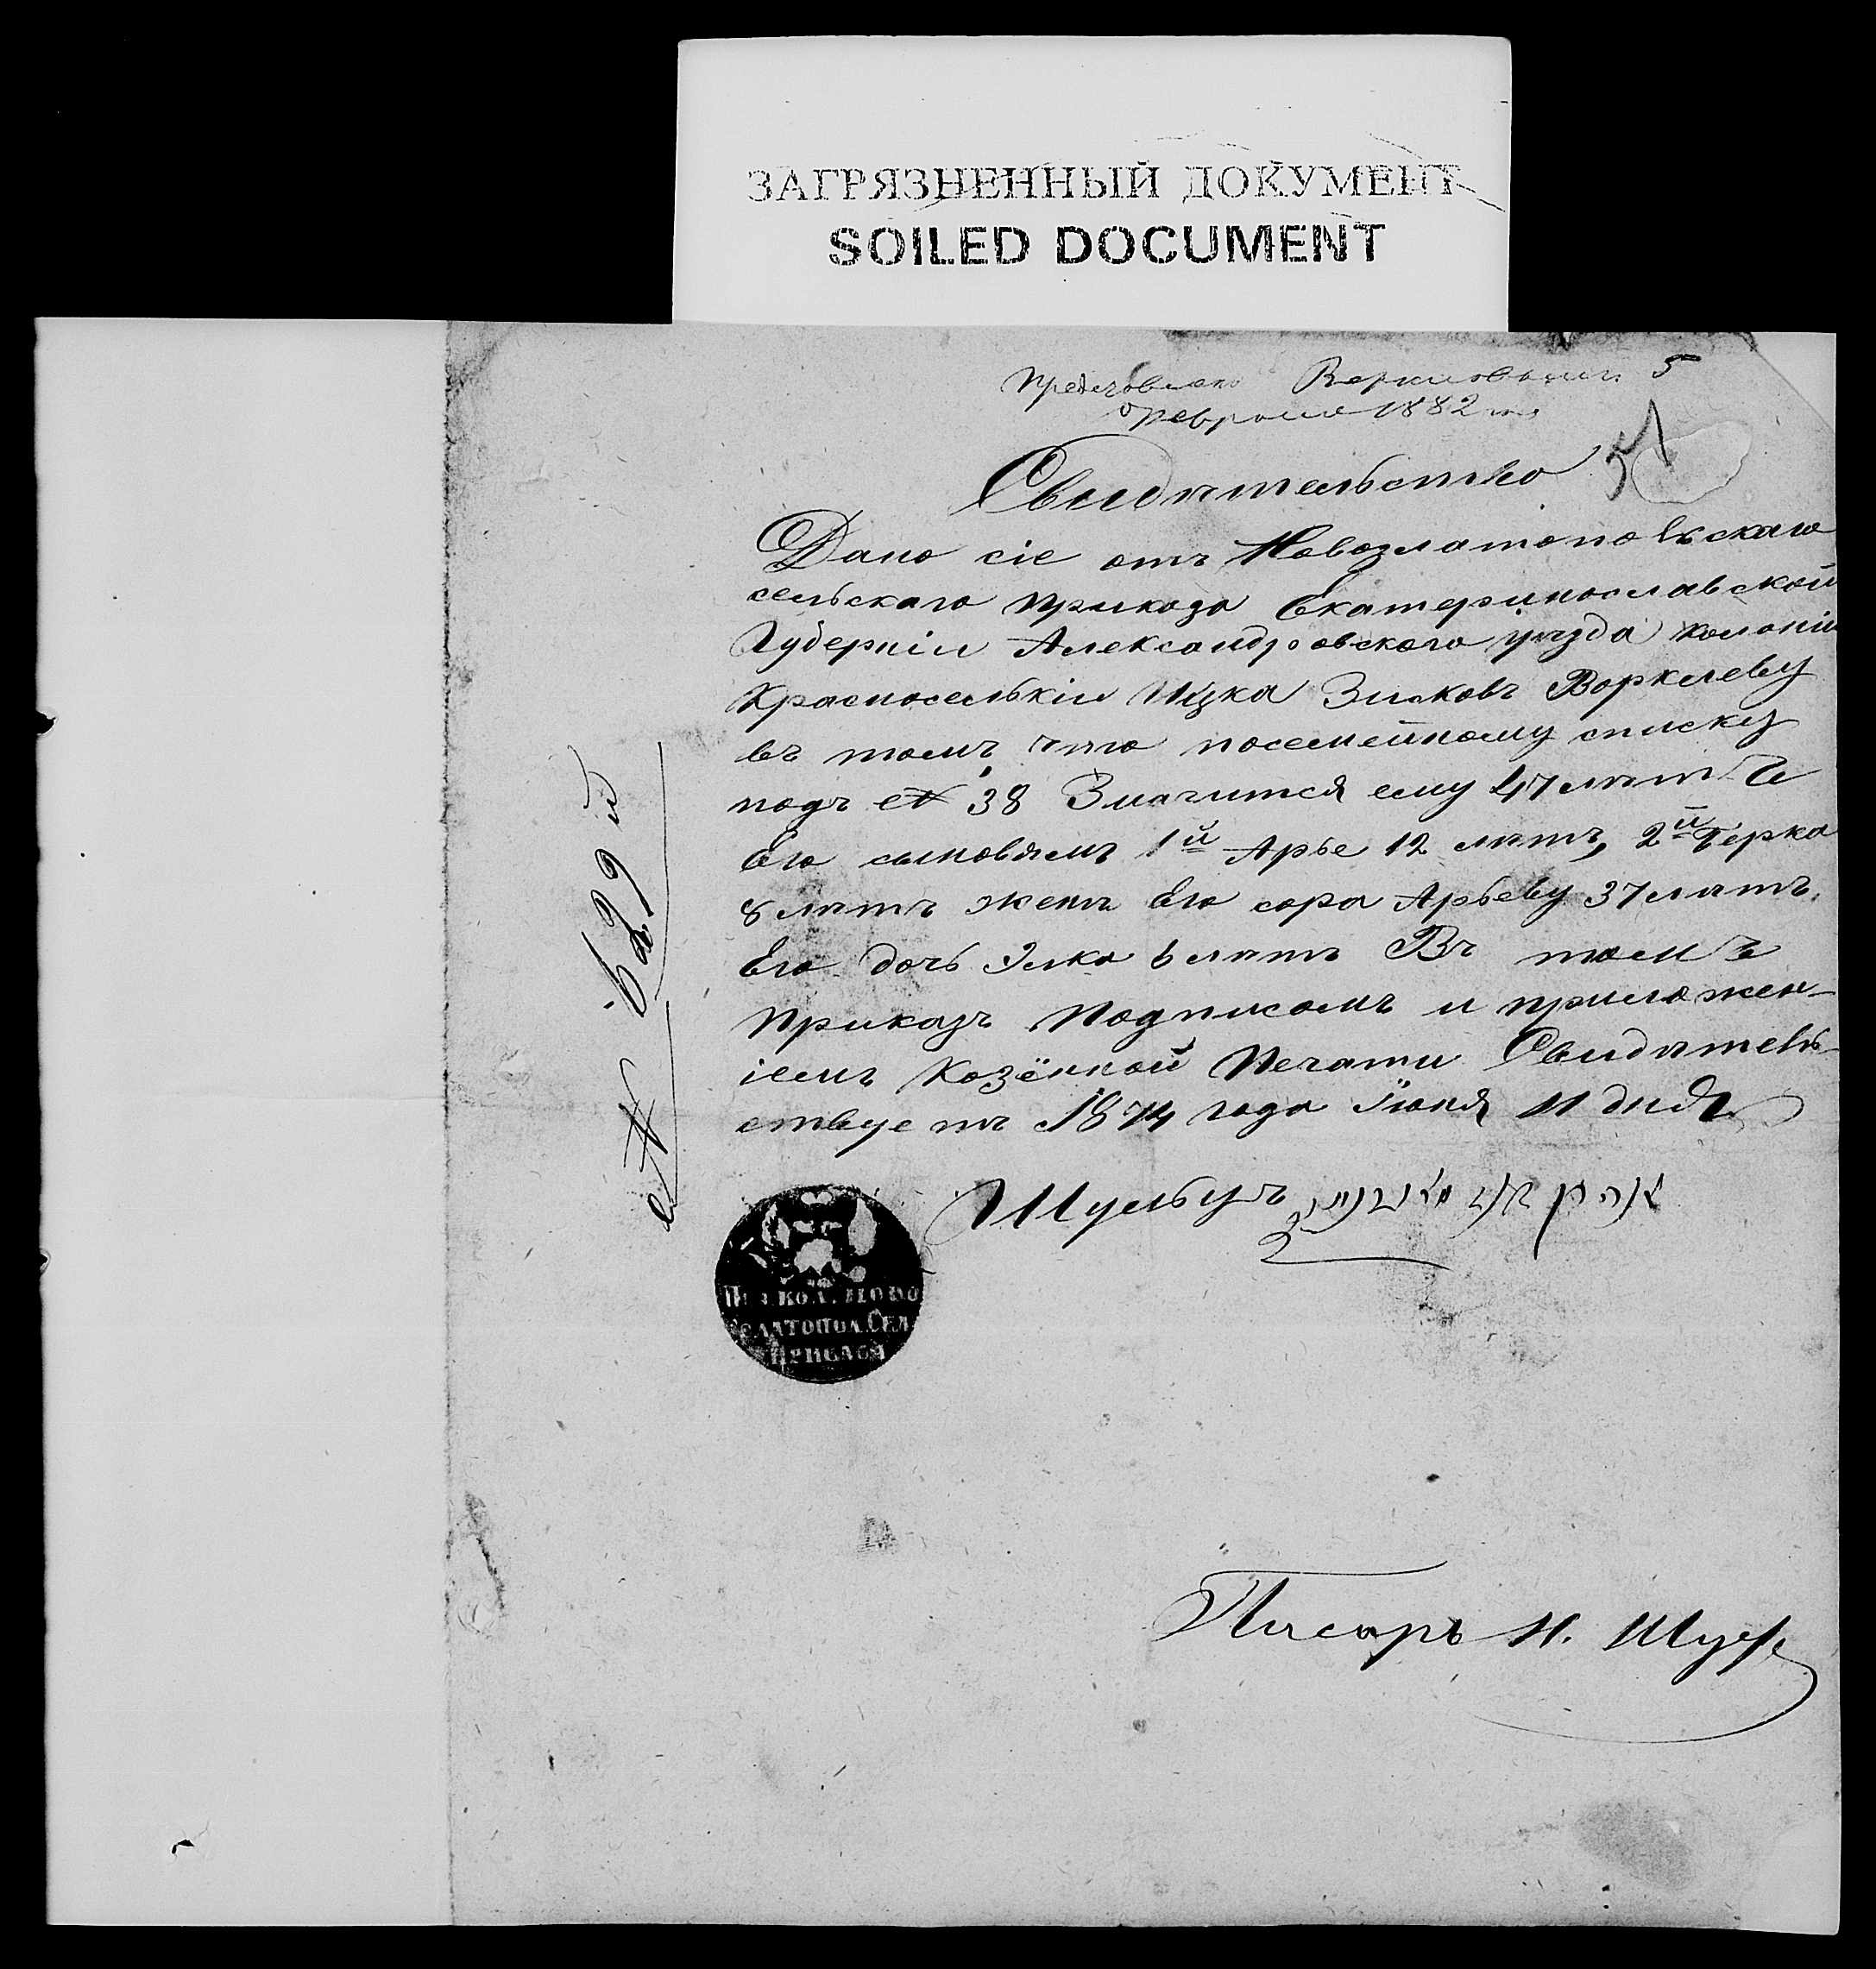 ЗАГРЯЗНЕННЫЙ ДОКУМЕНТ
SOILED DOCUMENT
5
февраля 1882 г.
51
Свидѣтельство
Дано сіе отъ Новозлатопольскаго
сельскаго Приказа Екатеринославской
Губерніи Александровскаго уѣзда колоніи
Красноселькіи Ицка Зисковъ Ворклеву
въ томъ что посемейному списку
подъ № 38 Значится ему 47 лѣтъ
Его сыновямъ 1й Арье 12 лѣтъ, 2й Герка
8 лѣтъ женѣ Его сора Арьеву 37 лѣтъ.
Его дочь Элка 6 лѣтъ Въ томъ
Приказъ Подписомъ и приложен-
іемъ Козённой Печати Свидѣтель-
ствуетъ 1874 года Iюня 11 дня
Шульцъ
№ 629 й
КОЛ. НОВО
ЗЛАТОПОЛ. СЕЛ
ПРИКАЗА
Писарь И.